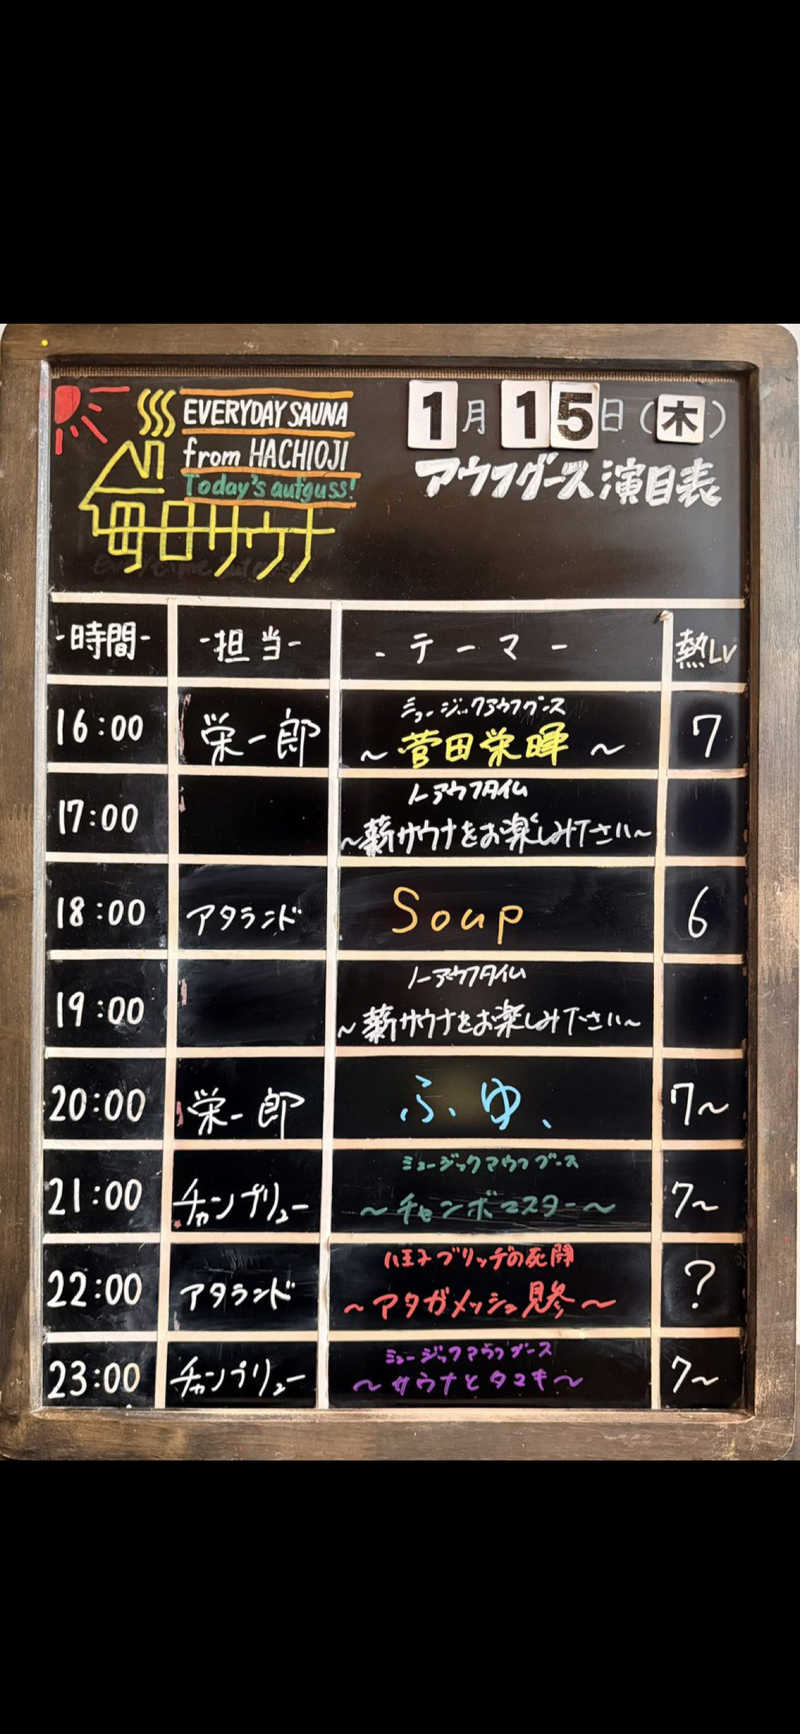 EVERYDAY SAUNA
from HACHIOJI
Today's aufguss!
毎日サウナ
1月15日(木)
アウフグース演目表
-時間- -担当- -テーマ- 熱LV
ミュージックアウフグース
16:00 栄一郎 〜菅田栄暉〜 7
ノーアウフタイム
17:00 〜薪サウナをお楽しみ下さい〜
18:00 アタランド Soup 6
ノーアウフタイム
19:00 〜薪サウナをお楽しみ下さい〜
20:00 栄一郎 ふゆ、 7〜
ミュージックアウフグース
21:00 チャンブリュー 〜チャンボマスター〜 7〜
八王子ブリッヂの死闘
22:00 アタランド 〜アタガメッシュ見参〜 ?
ミュージックアウフグース
23:00 チャンブリュー 〜サウナとタマキ〜 7〜